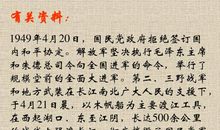 有关资料：
1949年4月20日，国民党政府拒绝签订国
内和平协定。解放军坚决执行毛泽东主席
和朱德总司令向全国进军的命令，举行了
规模空前的全面大进军。第二、三野战军
和地方武装在长江南北广大人民的支援下，
于4月21日晨，以木帆船为主要渡江工具，
在西起湖口、东至江阴，长达500余公里